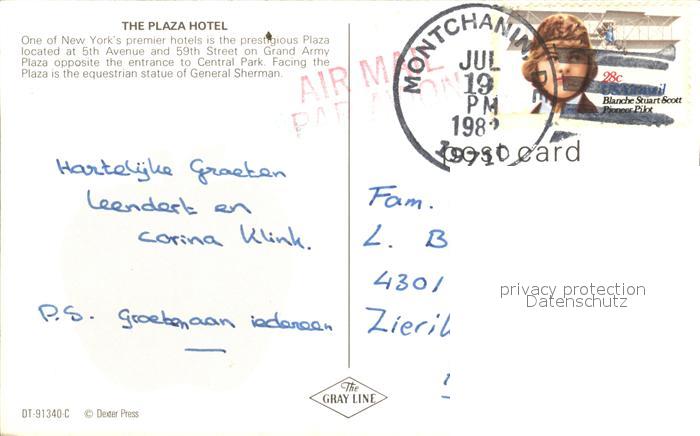 THE PLAZA HOTEL
One of New York's premier hotels is the prestigious Plaza
located at 5th Avenue and 59th Street on Grand Army
Plaza opposite the entrance to Central Park. Facing the
Plaza is the equestrian statue of General Sherman.
AIR MAIL
PAR AVION
MONTCHANIN, DE
JUL
19
PM
198
1971
28c
USAirmail
Blanche Stuart Scott
Pioneer Pilot
post card
Hartelijke Groeten
Leendert en
Corina Klink.
P.S. Groeten aan iedereen
Fam.
L. B
4301
Zieri
privacy protection
Datenschutz
The
GRAY LINE
DT-91340-C © Dexter Press